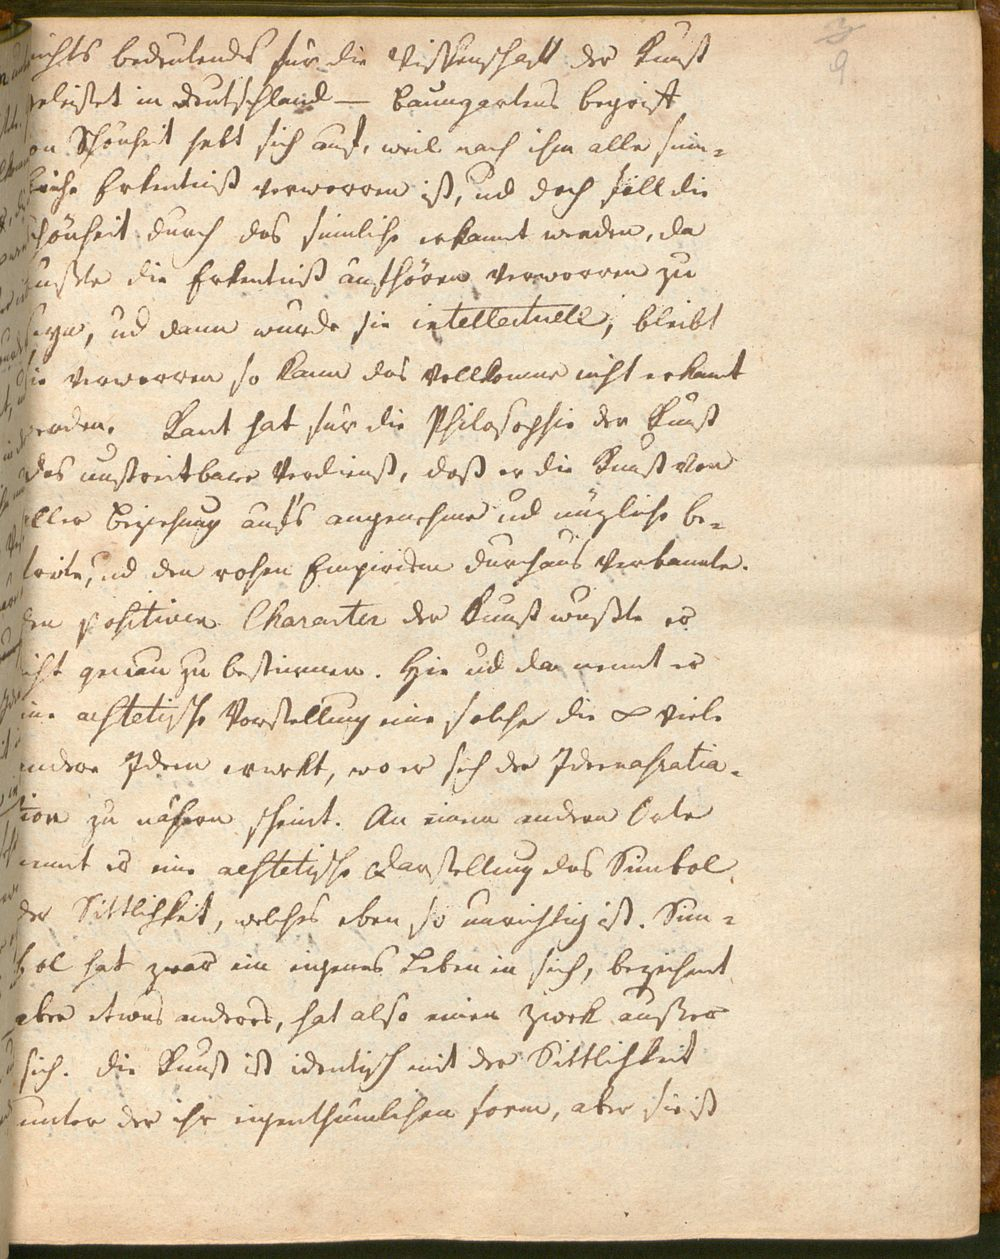 9
nichts bedeutendes für die Wissenschaft der Kunst
geleistet in Deutschland — Baumgartens begrift
von Schönheit hebt sich auf, weil nach ihm alle sinn=
liche Erkentniß verworren ist, und doch soll die
schönheit durch das sinnliche erkannt werden, da
mußte die Erkentniß aufhören verworren zu
seyn, und dann wurde sie intellectuell; bleibt
sie verworren so kann das Vollkomne nicht erkant
werden. Kant hat für die Philosophie der Kunst
das unstreitbare Verdienst, daß er die Kunst von
aller Beziehung auf's angenehme und nüzliche be=
freite, und den rohen Empirism durchaus verbannte.
den positiven Charakter der Kunst wußte er
nicht genau zu bestimmen. Hie und da nennt er
eine aesthetische Vorstellung eine solche die ∞ viele
andere Ideen erwekt, wo er sich der Ideenassocia=
tion zu nähern scheint. An einem andern Orte
nennt er eine aesthetische Darstellung das Simbol
der Sittlichkeit, welches eben so unrichtig ist. Sim=
bol hat zwar ein eigenes Leben in sich, bezeichnet
aber etwas anderes, hat also einen Zwek außer
sich. die Kunst ist identisch mit der Sittlichkeit
unter der ihr eigenthümlichen form, aber sie ist